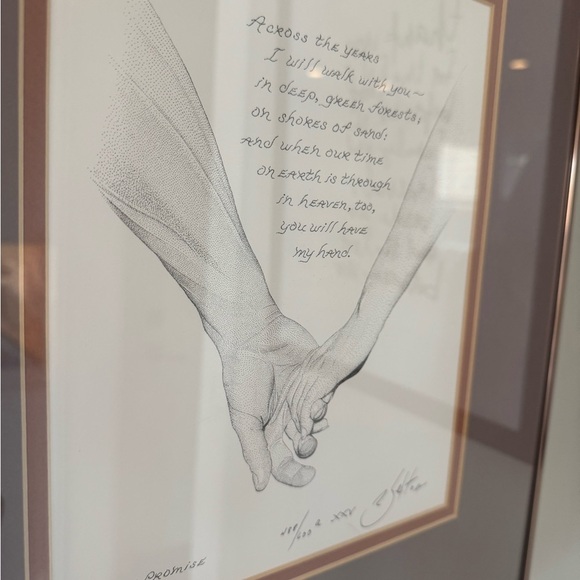 Across the years
I will walk with you~
in deep, green forests;
on shores of sand:
and when our time
on earth is through
in heaven, too,
you will have
my hand.
XXV
PROMISE